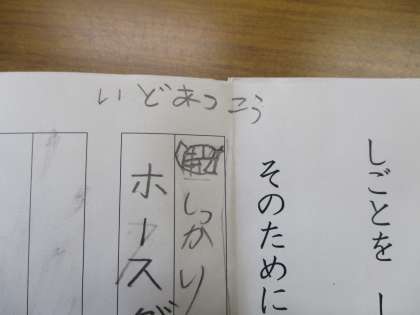 いどあつこう
しごとを し
そのために
しっかり
ホース